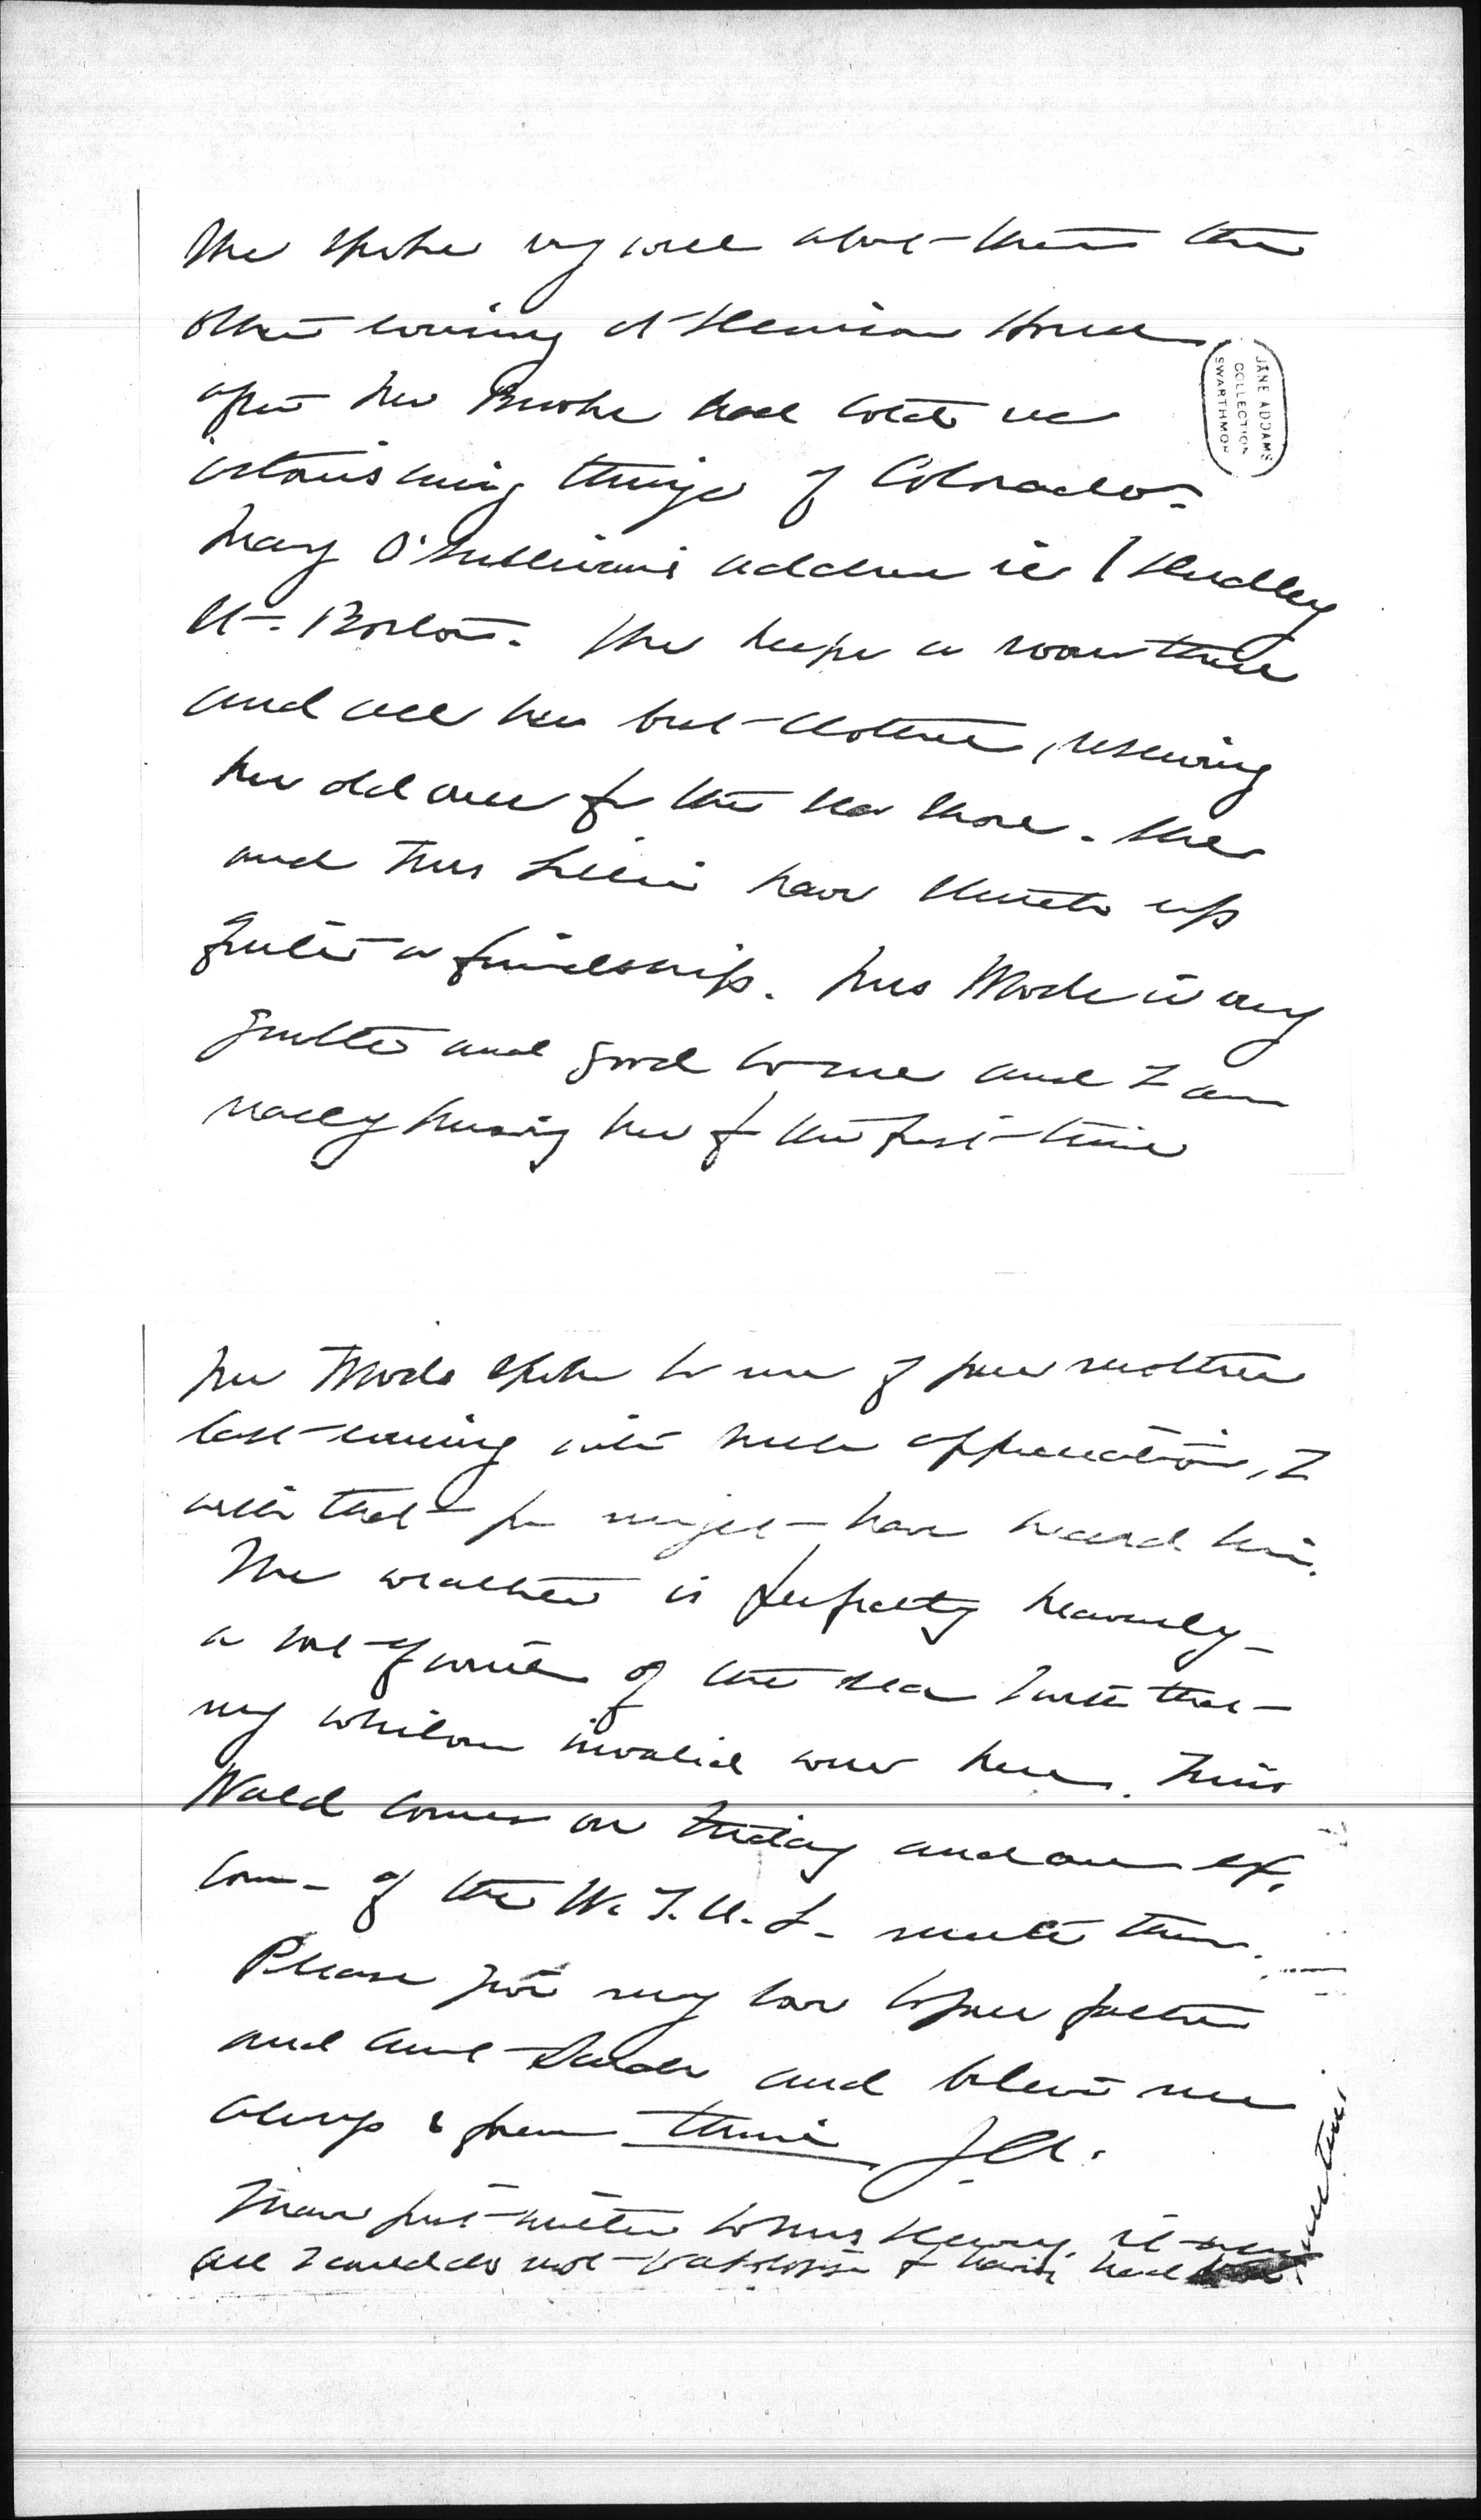 She spoke very well about them the
other evening at Denison House
after Mrs Brooks had told us
astonishing things of Colorado.
JANE ADDAMS
COLLECTION
SWARTHMOR
Mary O'Sullivan's address is 1 Dudley
St. Boston. She keeps a room there
and all her best clothes, reserving
her old ones for the sea shore. She
and Miss Lillie have struck up
quite a friendship. Mrs Wood is very
gentle and good to me and I am
really knowing her for the first time
Mr Woods spoke to me of your mother
last evening with much appreciation, I
wish that you might have heard him.
The weather is perfectly heavenly —
a whiff of the sea I wish that
my whilom invalid were here. Miss
Wald comes on Friday and our Ex.
Com. of the W. T. U. L. meets then.
Please give my love to your father
and Aunt Sarah and believe me
always & forever thine J.A.
I have just written to Miss it was
all I could do not to apologize for having had